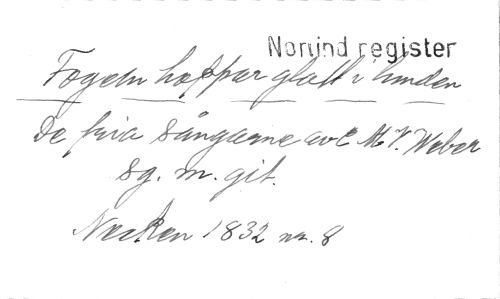 Norlind register
Fogeln hoppar glatt i lunden
De fria sångarne av C M V. Weber
Sg. m. git.
Necken 1832 nr. 8